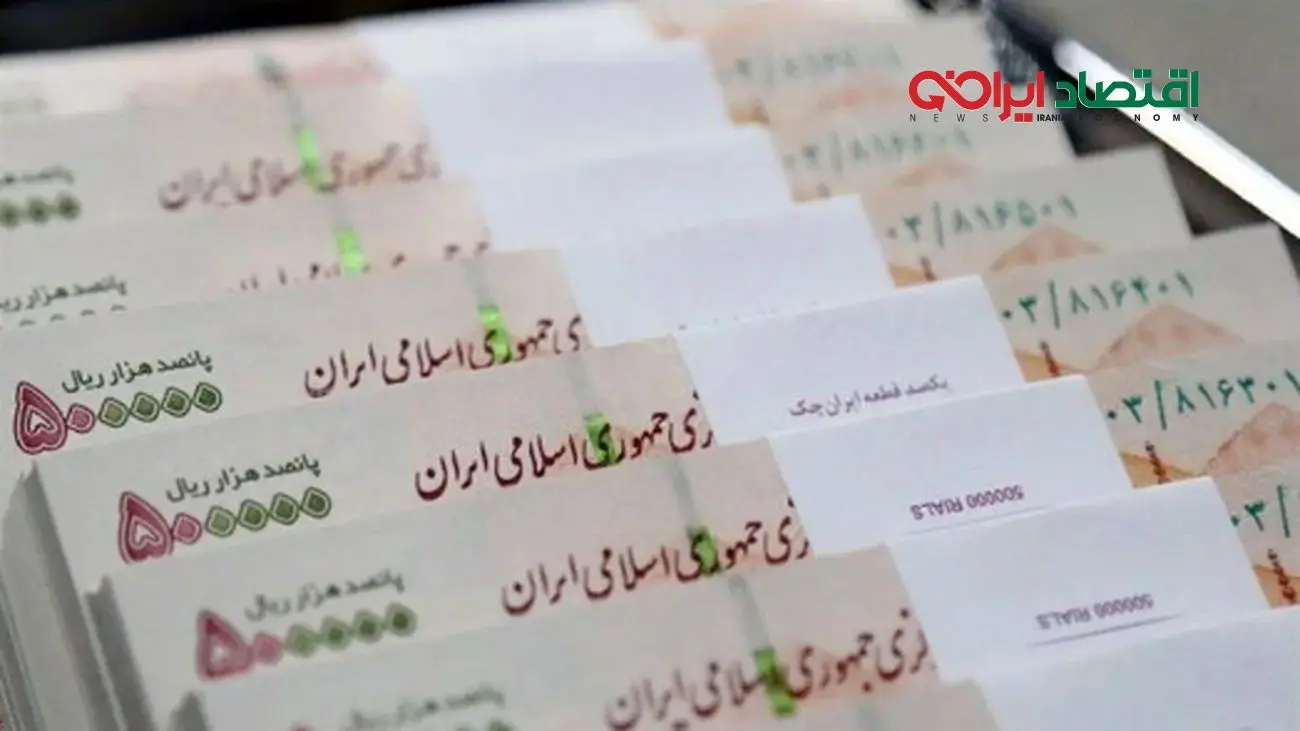 اقتصاد ایرانی
NEWS IRANIAN ECONOMY
۰۳/۸۱۶۵۰۱
۰۳/۸۱۶۴۰۱
۰۳/۸۱۶۳۰۱
پانصد هزار ریال
جمهوری اسلامی ایران
پانصد هزار ریال
جمهوری اسلامی ایران
۵۰۰۰۰۰
پانصد هزار ریال
جمهوری اسلامی ایران
۵۰۰۰۰۰
پانصد هزار ریال
جمهوری اسلامی ایران
۵۰۰۰۰۰
جمهوری اسلامی ایران
یکصد قطعه ایران چک
500000 RIALS
500000 RIALS